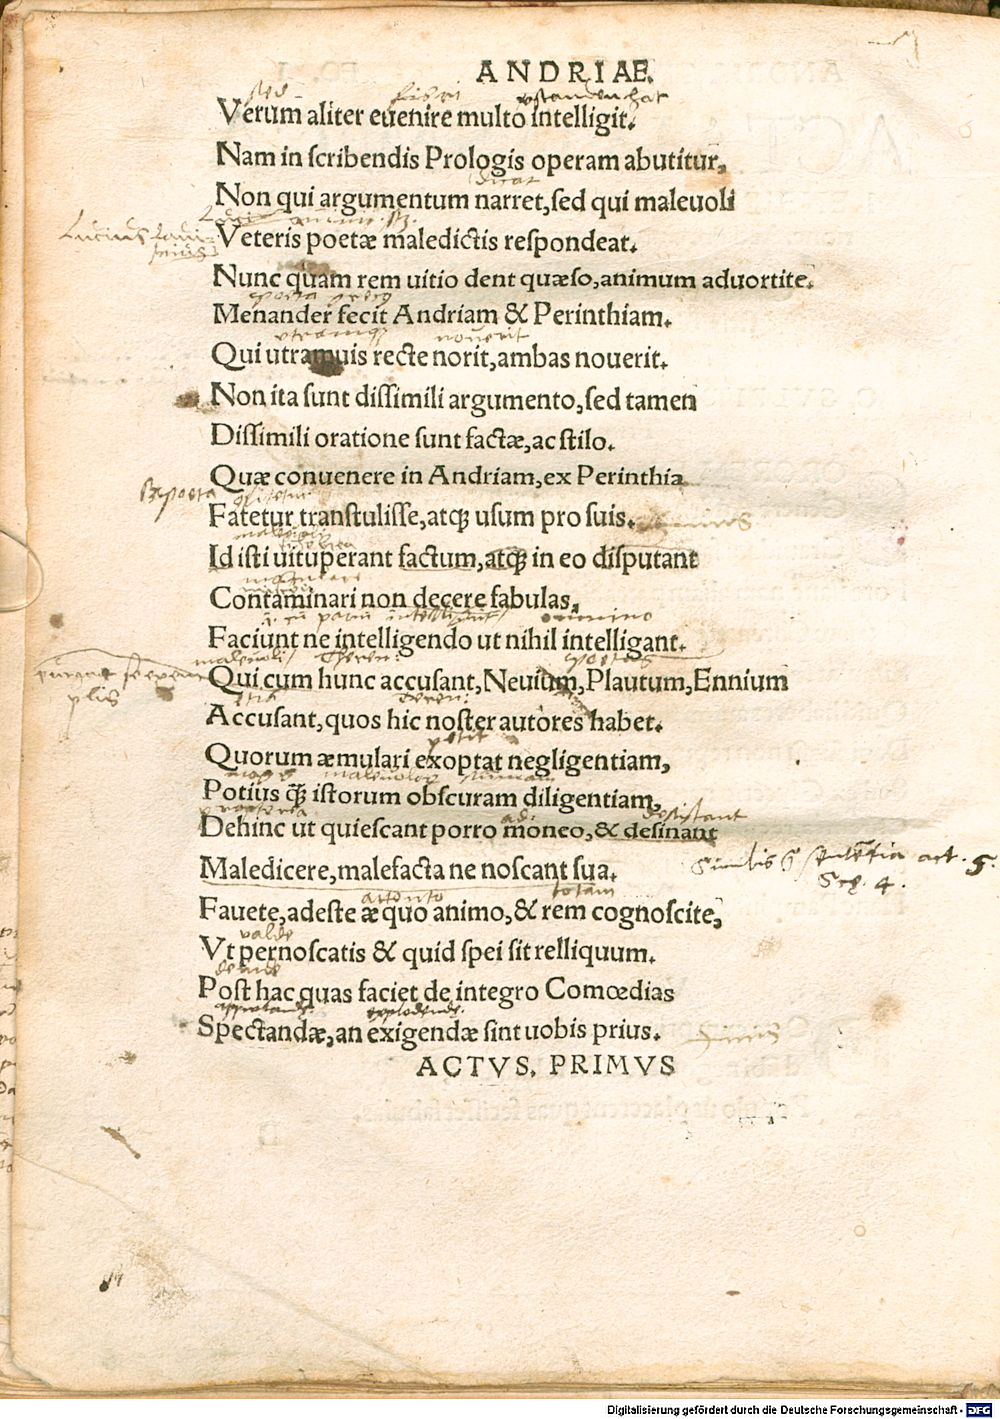 ANDRIAE.
sed fieri
Verum aliter euenire multo intelligit.
Nam in scribendis Prologis operam abutitur,
dicat
Non qui argumentum narret, sed qui maleuoli
Lucius Laui-
nius
Veteris poetæ maledictis respondeat.
Nunc quam rem uitio dent quæso, animum aduortite.
poeta grecus
Menander fecit Andriam & Perinthiam.
utramq; nouerit
Qui utramuis recte norit, ambas nouerit.
Non ita sunt dissimili argumento, sed tamen
Dissimili oratione sunt factæ, ac stilo.
Quæ conuenere in Andriam, ex Perinthia
poeta
Fatetur transtulisse, atq; usum pro suis.
maleuoli
Id isti uituperant factum, atq; in eo disputant
Contaminari non decere fabulas,
omnino
Faciunt ne intelligendo ut nihil intelligant.
maleuoli Teren: poetas
Qui cum hunc accusant, Neuium, Plautum, Ennium
plis
Teren:
Accusant, quos hic noster autores habet.
petit
Quorum æmulari exoptat negligentiam,
magis maleuolorum
Potius q̃ istorum obscuram diligentiam,
propterea ad: desistant
Dehinc ut quiescant porro moneo, & desinant
Similis sententia act. 5.
Sce. 4.
Maledicere, malefacta ne noscant sua.
attento totam
Fauete, adeste æquo animo, & rem cognoscite,
valde
Vt pernoscatis & quid spei sit relliquum.
deinde
Post hac quas faciet de integro Comœdias
explodende
Spectandæ, an exigendæ sint uobis prius.
Finis
ACTVS. PRIMVS
Digitalisierung gefördert durch die Deutsche Forschungsgemeinschaft - DFG